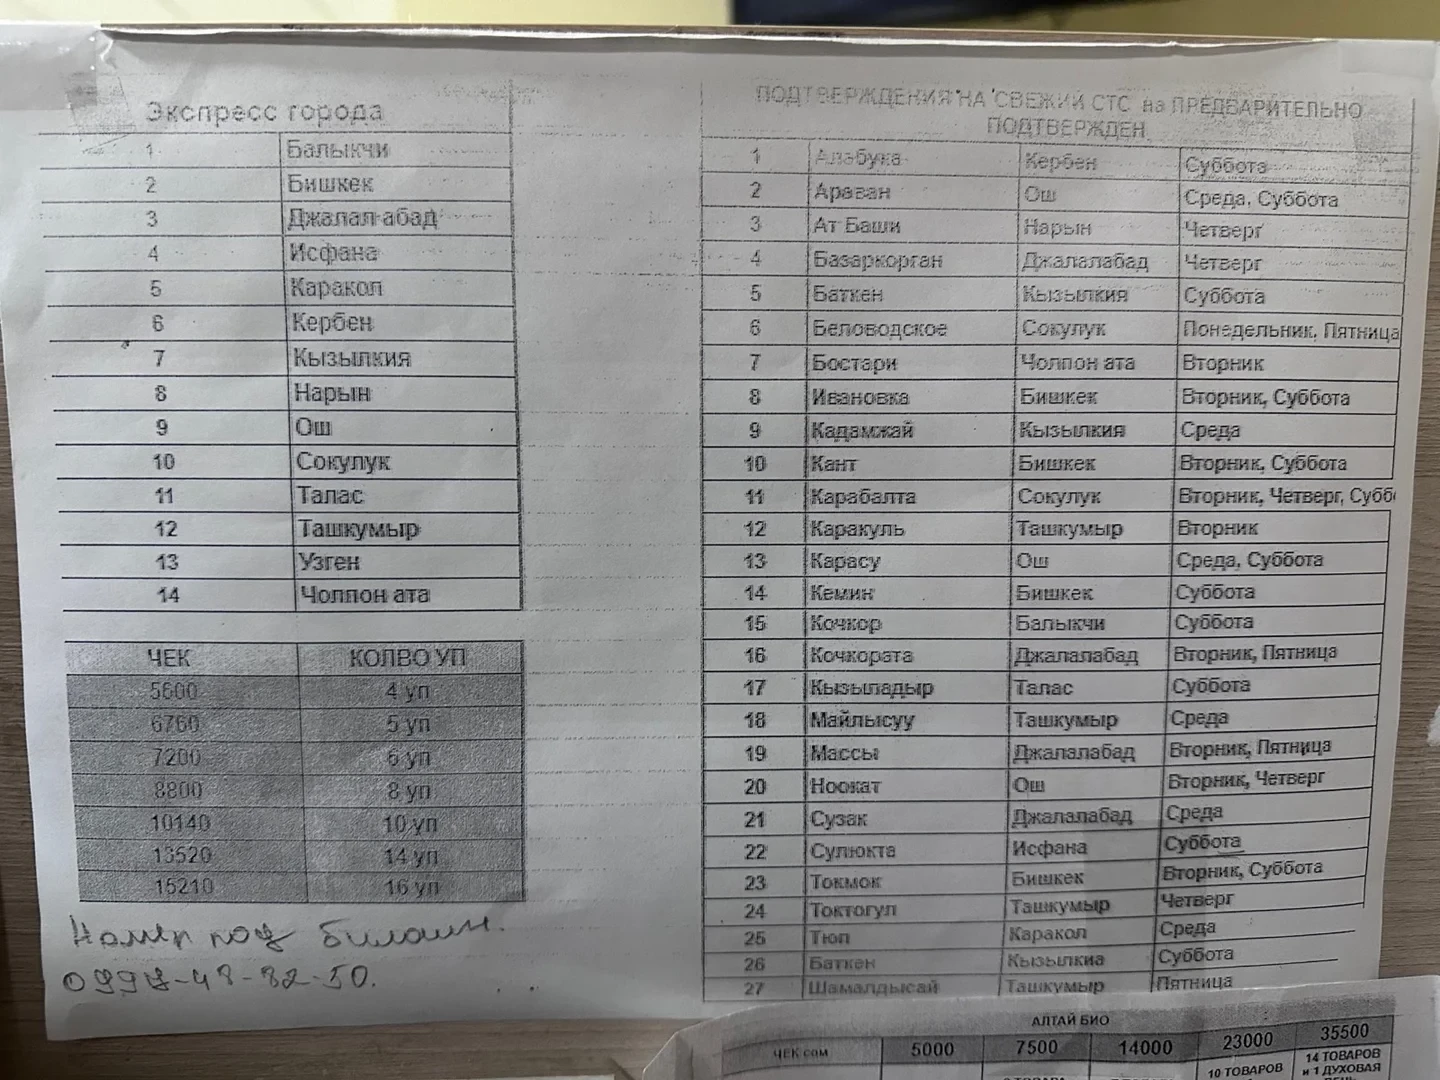 Экспресс города
1 Балыкчи
2 Бишкек
3 Джалал абад
4 Исфана
5 Каракол
6 Кербен
7 Кызылкия
8 Нарын
9 Ош
10 Сокулук
11 Талас
12 Ташкумыр
13 Узген
14 Чолпон ата
ЧЕК КОЛВО УП
5600 4 уп
6760 5 уп
7200 6 уп
8800 8 уп
10140 10 уп
13520 14 уп
15210 16 уп
Номер под билайн.
ПОДТВЕРЖДЕНИЯ НА СВЕЖИЙ СТС на ПРЕДВАРИТЕЛЬНО
ПОДТВЕРЖДЕН
1 Алабука Кербен Суббота
2 Араван Ош Среда, Суббота
3 Ат Баши Нарын Четверг
4 Базаркорган Джалалабад Четверг
5 Баткен Кызылкия Суббота
6 Беловодское Сокулук Понедельник, Пятница
7 Бостари Чолпон ата Вторник
8 Ивановка Бишкек Вторник, Суббота
9 Кадамжай Кызылкия Среда
10 Кант Бишкек Вторник, Суббота
11 Карабалта Сокулук Вторник, Четверг, Субб
12 Каракуль Ташкумыр Вторник
13 Карасу Ош Среда, Суббота
14 Кемин Бишкек Суббота
15 Кочкор Балыкчи Суббота
16 Кочкората Джалалабад Вторник, Пятница
17 Кызыладыр Талас Суббота
18 Майлысуу Ташкумыр Среда
19 Массы Джалалабад Вторник, Пятница
20 Ноокат Ош Вторник, Четверг
21 Сузак Джалалабад Среда
22 Сулюкта Исфана Суббота
23 Токмок Бишкек Вторник, Суббота
24 Токтогул Ташкумыр Четверг
25 Тюп Каракол Среда
26 Баткен Кызылкиа Суббота
27 Шамалдысай Ташкумыр Пятница
АЛТАЙ БИО
ЧЕК сом 5000 7500 14000 23000 35500
10 ТОВАРОВ 14 ТОВАРОВ
и 1 ДУХОВАЯ